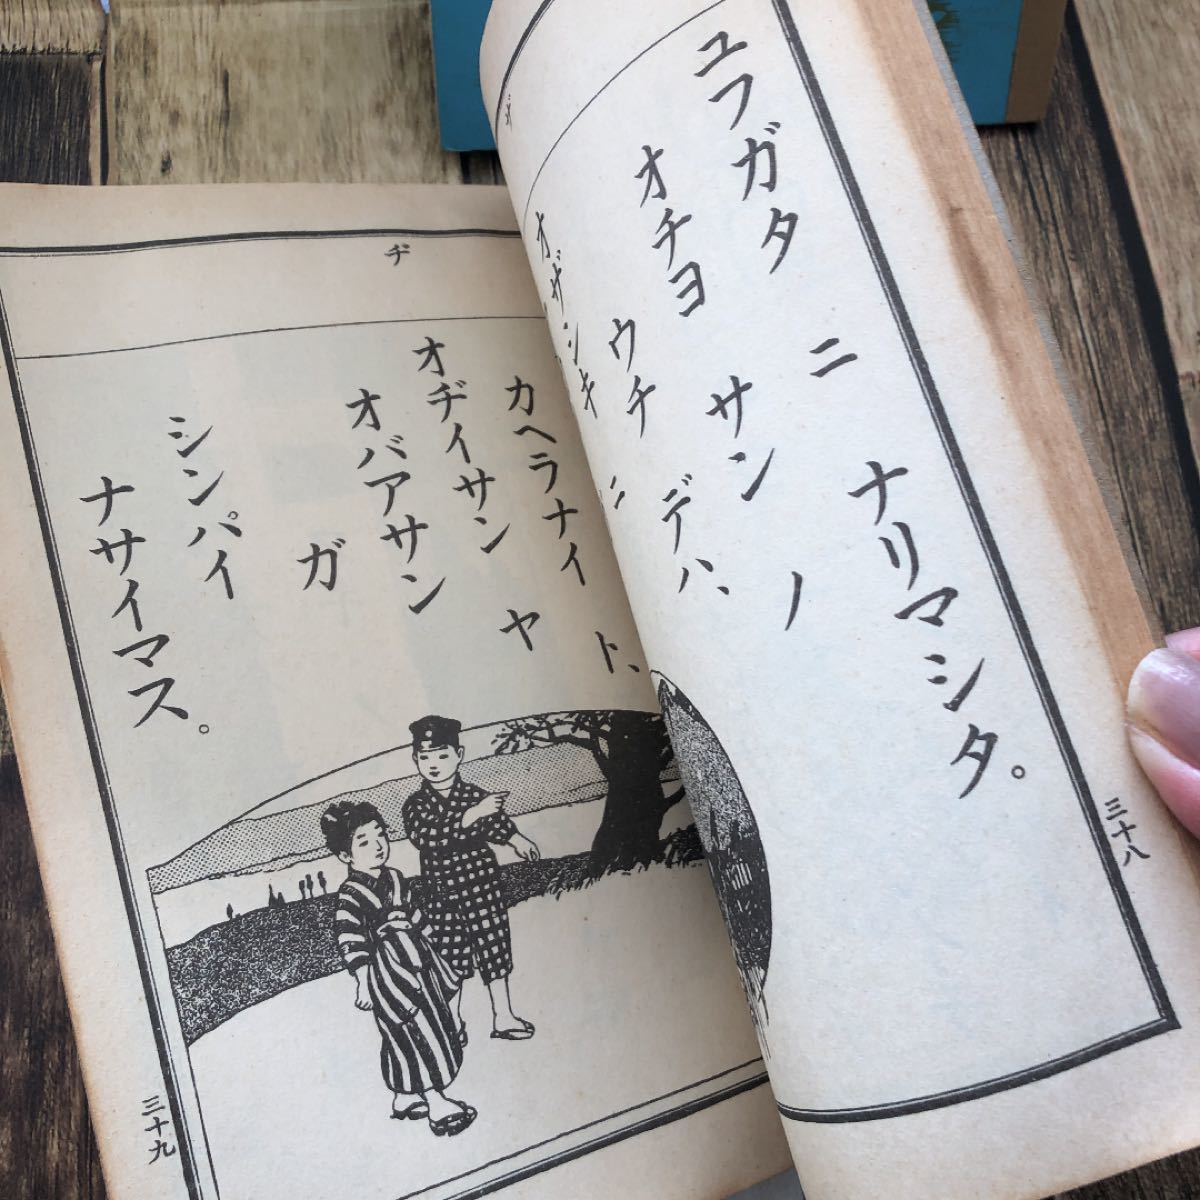 ユフガタ ニ ナリマシタ。
オチヨ サン ノ
ウチ デハ、
オザシキ ニ
三十八
ヂ
カヘラナイ ト、
オヂイサン ヤ
オバアサン
ガ
シンパイ
ナサイマス。
三十九